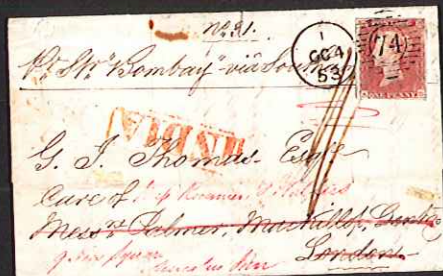 No 31.
Pr Str "Bombay" via South
1
OC 4
53
74
ONE PENNY
INDIA
G. J. Thomas Esqre
Care of
Messrs Palmer, Mackillop, Dent & Co
London